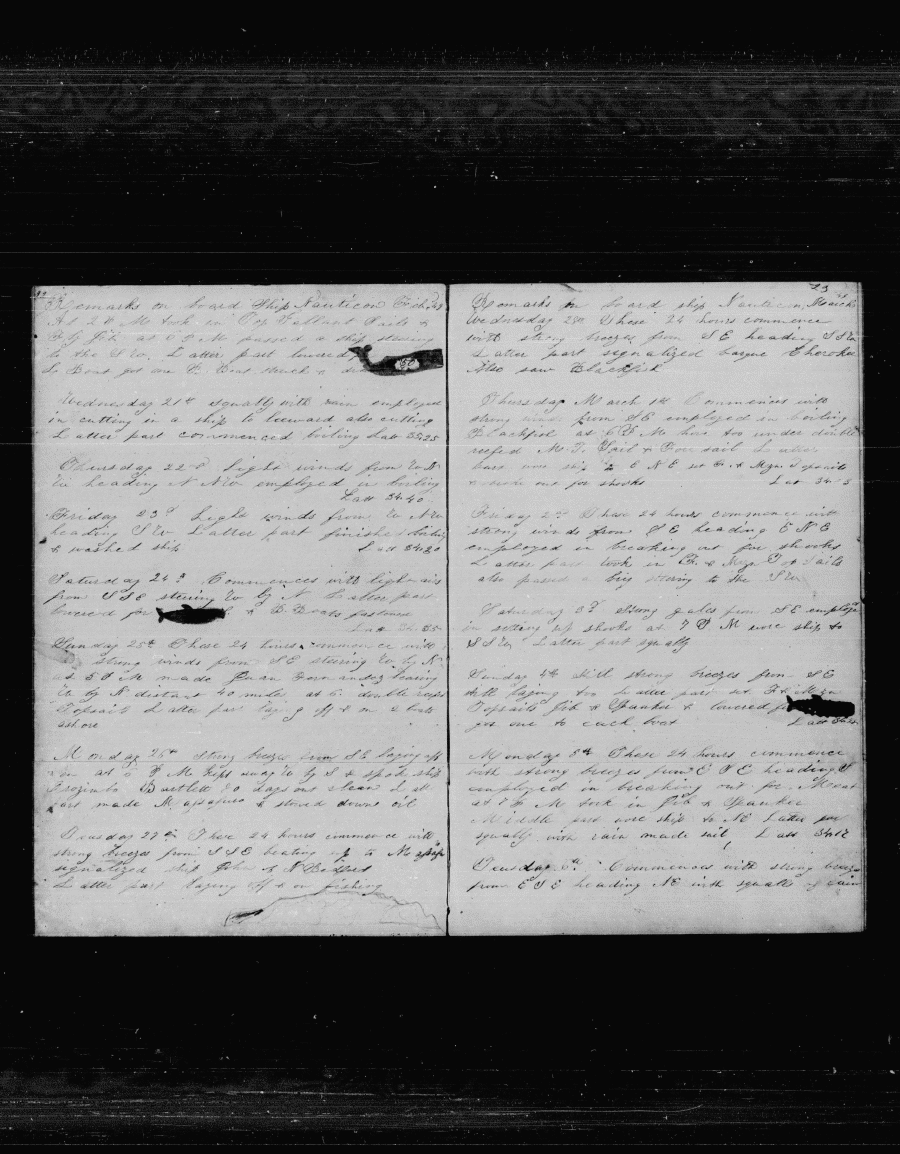 22
Remarks on board Ship Nauticon Feb
At 2 P M took in Top Gallant Sails &
F G Jib at 6 P M passed a ship steering
to the S W. Latter part lowered
S. Boat got one B. Boat struck &
Wednesday 21st squally with rain employed
in cutting in a ship to leeward also cutting
Latter part commenced boiling Lat 35.25
Thursday 22nd light winds from W N
W heading N N W employed in boiling
Latt 34.40
Friday 23d Light winds from W N W
heading S W Latter part finished boiling
& washed ship Lat 34.20
Saturday 24th Commences with light airs
from S S E steering W by N Latter part
lowered for & B. Boats fastened
Latt
Sunday 25th These 24 hours commence with
strong winds from S E steering W by N
at 5 P M made Juan Fernandez bearing
W by N distant 40 miles at 6 double reefs
Topsails Latter part laying off & on 2 boats
ashore
Monday 26th Strong breezes from S E laying off
& on at 6 P M kept away W by S & spoke ship
Bartlett 20 days out clean Latt
part made M. & stowed down oil
Tuesday 27th These 24 hours commence with
strong breezes from S S E beating up to M
signalized ship John &
Latter part laying off & on fishing
23
Remarks on board ship Nauticon March
Wednesday 28th These 24 hours commence
with strong breezes from S E heading S S W
Latter part signalized barque Cherokee
Also saw Blackfish
Thursday March 1st Commences with
strong winds from S E employed in boiling
Blackfish at 6 P M hove too under double
reefed M. T. Sail & Fore sail Latter
hours wore ship to E N E set F. & Mizn Topsails
& broke out for shooks Lat 34
Friday 2nd These 24 hours commence with
strong winds from S E heading E N E
employed in breaking out for shooks
Latter part took in F. & Mizn Top Sails
also passed a brig steering to the S W
Saturday 3d Strong gales from S E employed
in setting up shooks at 7 P M wore ship to
S S W Latter part squally
Sunday 4th Still strong breezes from S E
still laying too Latter part set F & Mizn
Topsails Jib & Spanker & lowered for
got one to each boat Latt
Monday 5th These 24 hours commence
with strong breezes from E S E heading S
employed in breaking out for Meat
at 7 P M took in Jib & Spanker
Middle part wore ship to N E Latter part
squally with rain made sail Latt
Tuesday 6th Commences with strong breezes
from E S E heading N E with squalls of rain